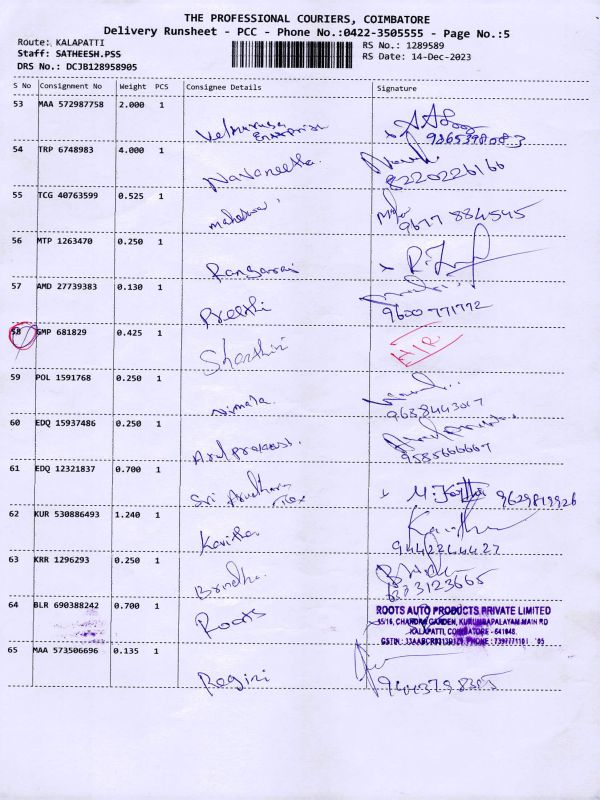 THE PROFESSIONAL COURIERS, COIMBATORE
Delivery Runsheet - PCC - Phone No.:0422-3505555 - Page No.:5
Route: KALAPATTI
Staff: SATHEESH.PSS
DRS No.: DCJB128958905
RS No.: 1289589
RS Date: 14-Dec-2023
S No Consignment No Weight PCS Consignee Details Signature
53 MAA 572987758 2.000 1
Enterprise
54 TRP 6748983 4.000 1
Navaneetha.
8220226166
55 TCG 40763599 0.525 1
maheswari
9677 884545
56 MTP 1263470 0.250 1
Rangasai
57 AMD 27739383 0.130 1
Preethi
9600 771772
58 GMP 681829 0.425 1
Sharthini
59 POL 1591768 0.250 1
Nimala.
9638443017
60 EDQ 15937486 0.250 1
Arulprakash.
9585666667
61 EDQ 12321837 0.700 1
Sri Arudhara
Tex
9629819926
62 KUR 530886493 1.240 1
Kavitha
Kavitha
9442244427
63 KRR 1296293 0.250 1
Brindha.
64 BLR 690388242 0.700 1
Roots
ROOTS AUTO PRODUCTS PRIVATE LIMITED
55/16, CHANDRA GARDEN, KURUMBAPALAYAM MAIN RD
KALAPATTI, COIMBATORE - 641048.
65 MAA 573506696 0.135 1
Ragini